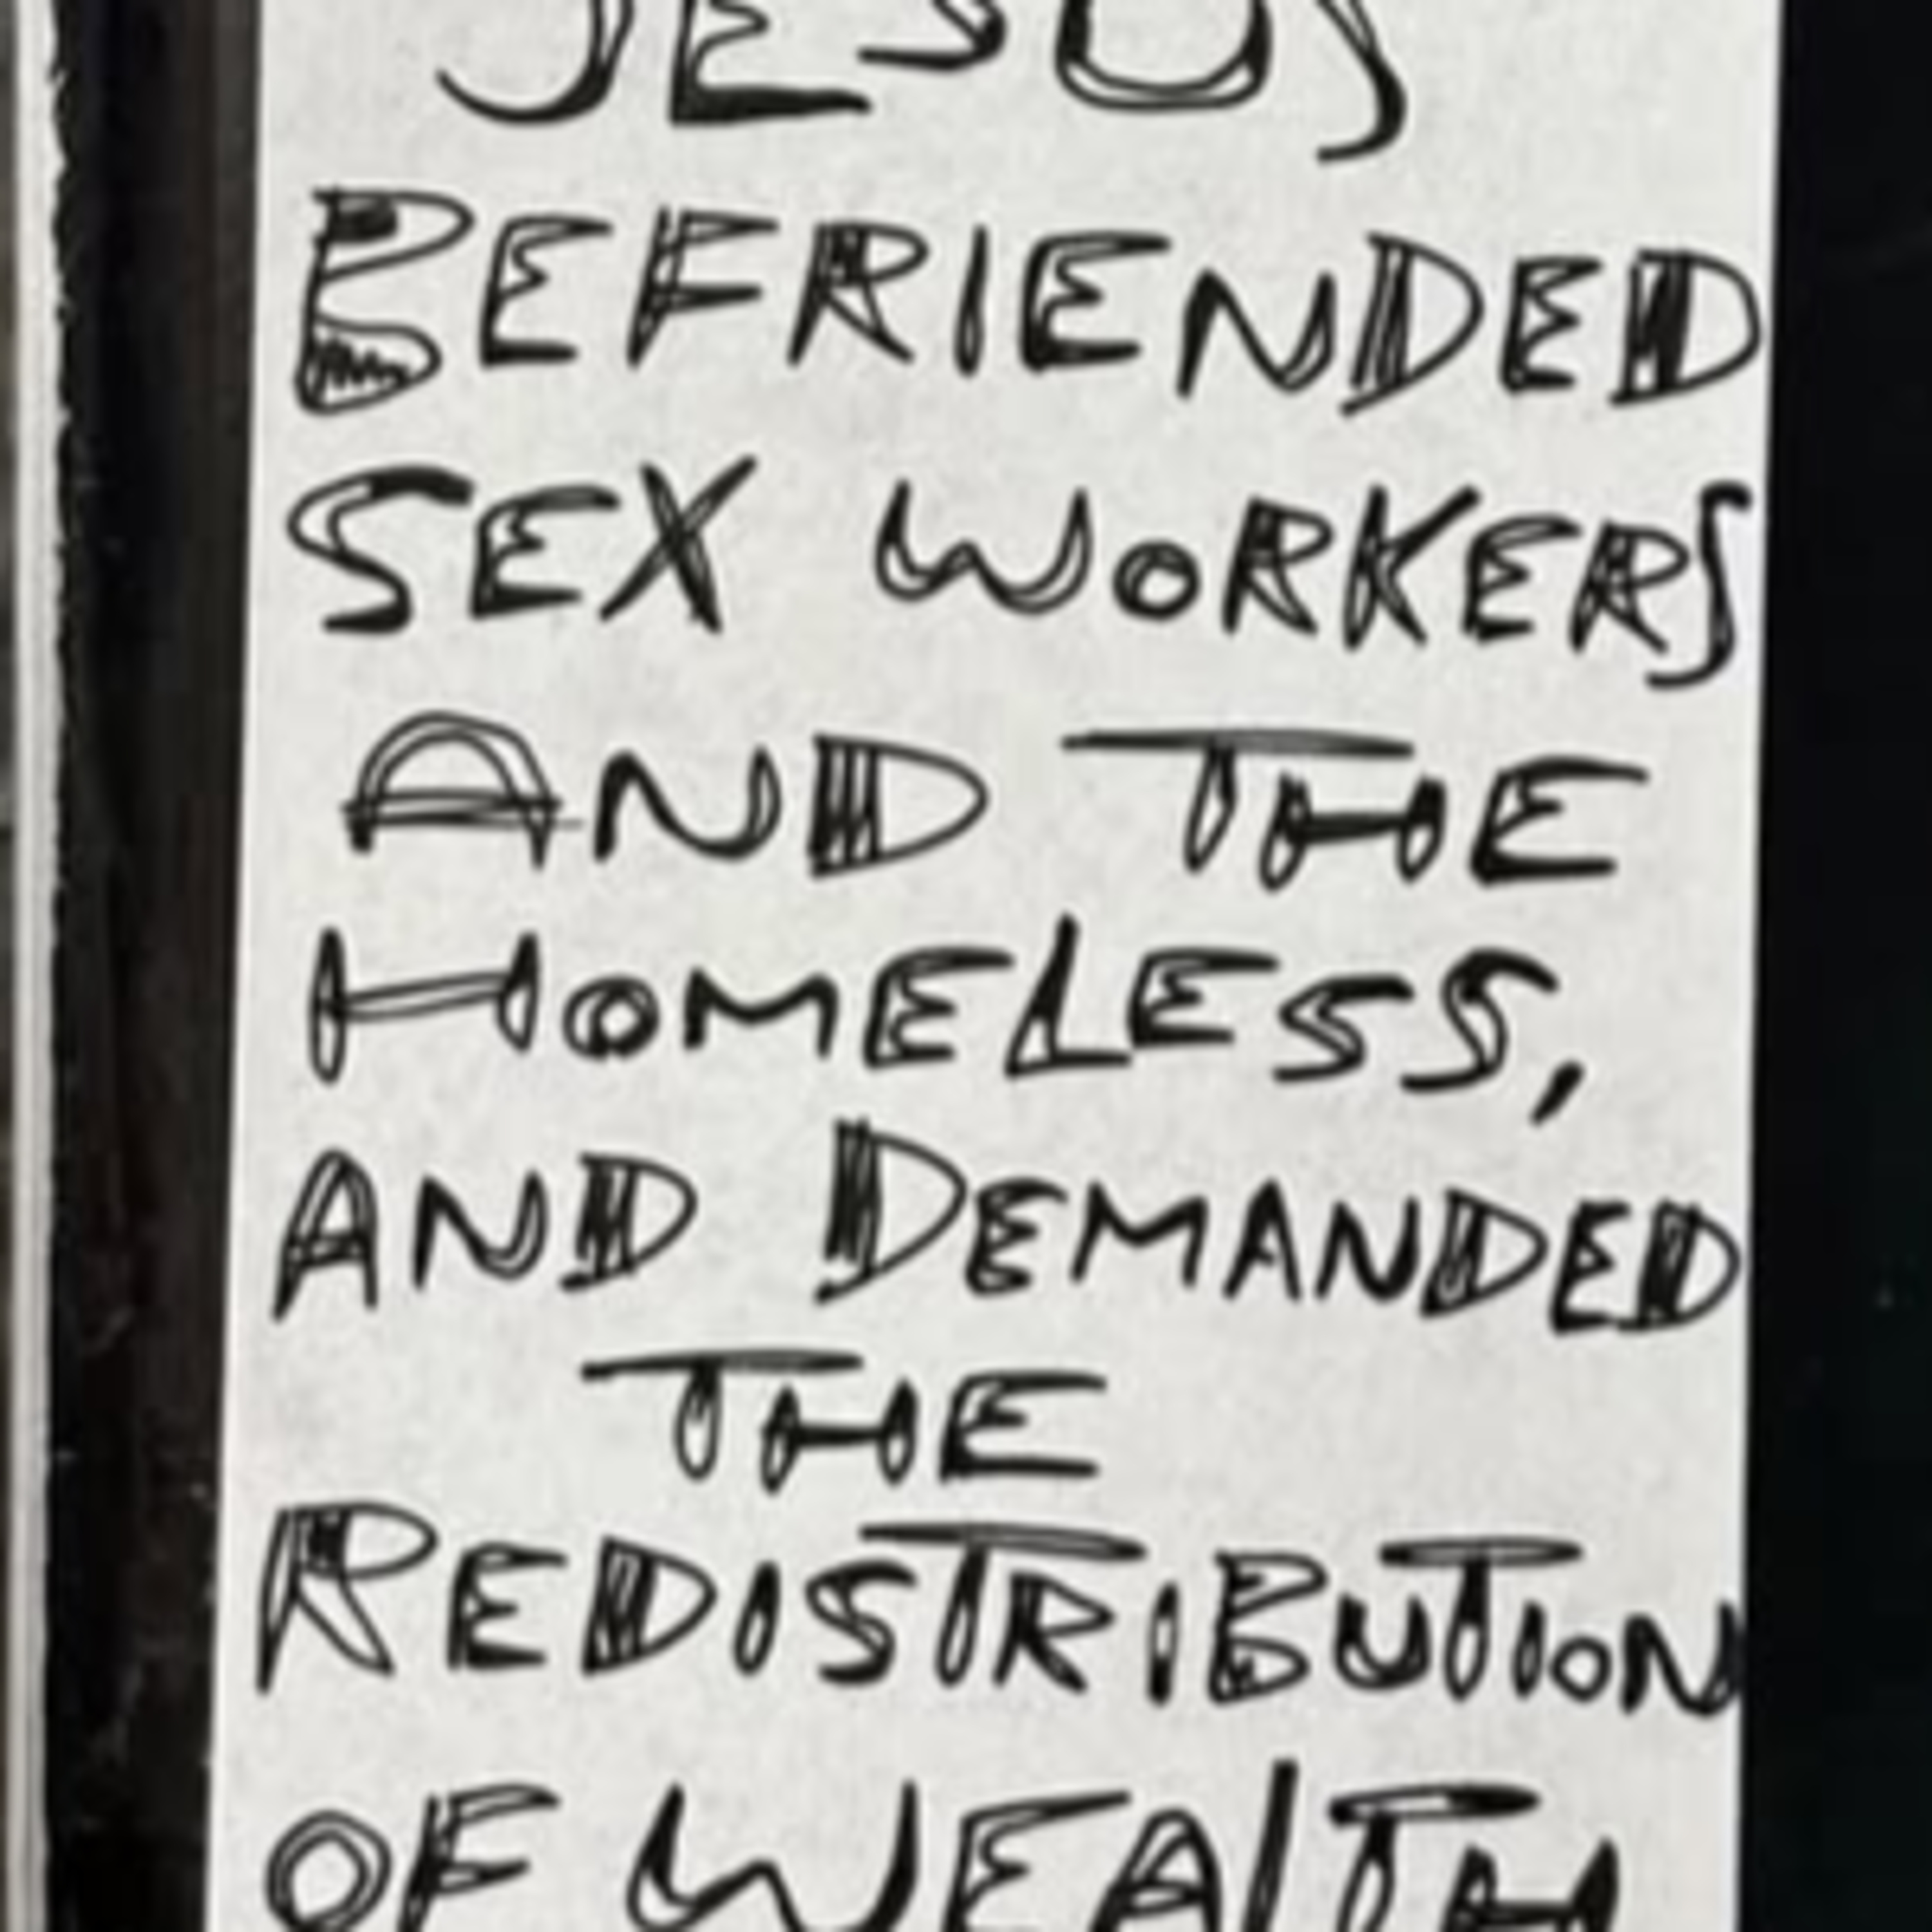 JESUS
BEFRIENDED
SEX WORKERS
AND THE
HOMELESS,
AND DEMANDED
THE
REDISTRIBUTION
OF WEALTH